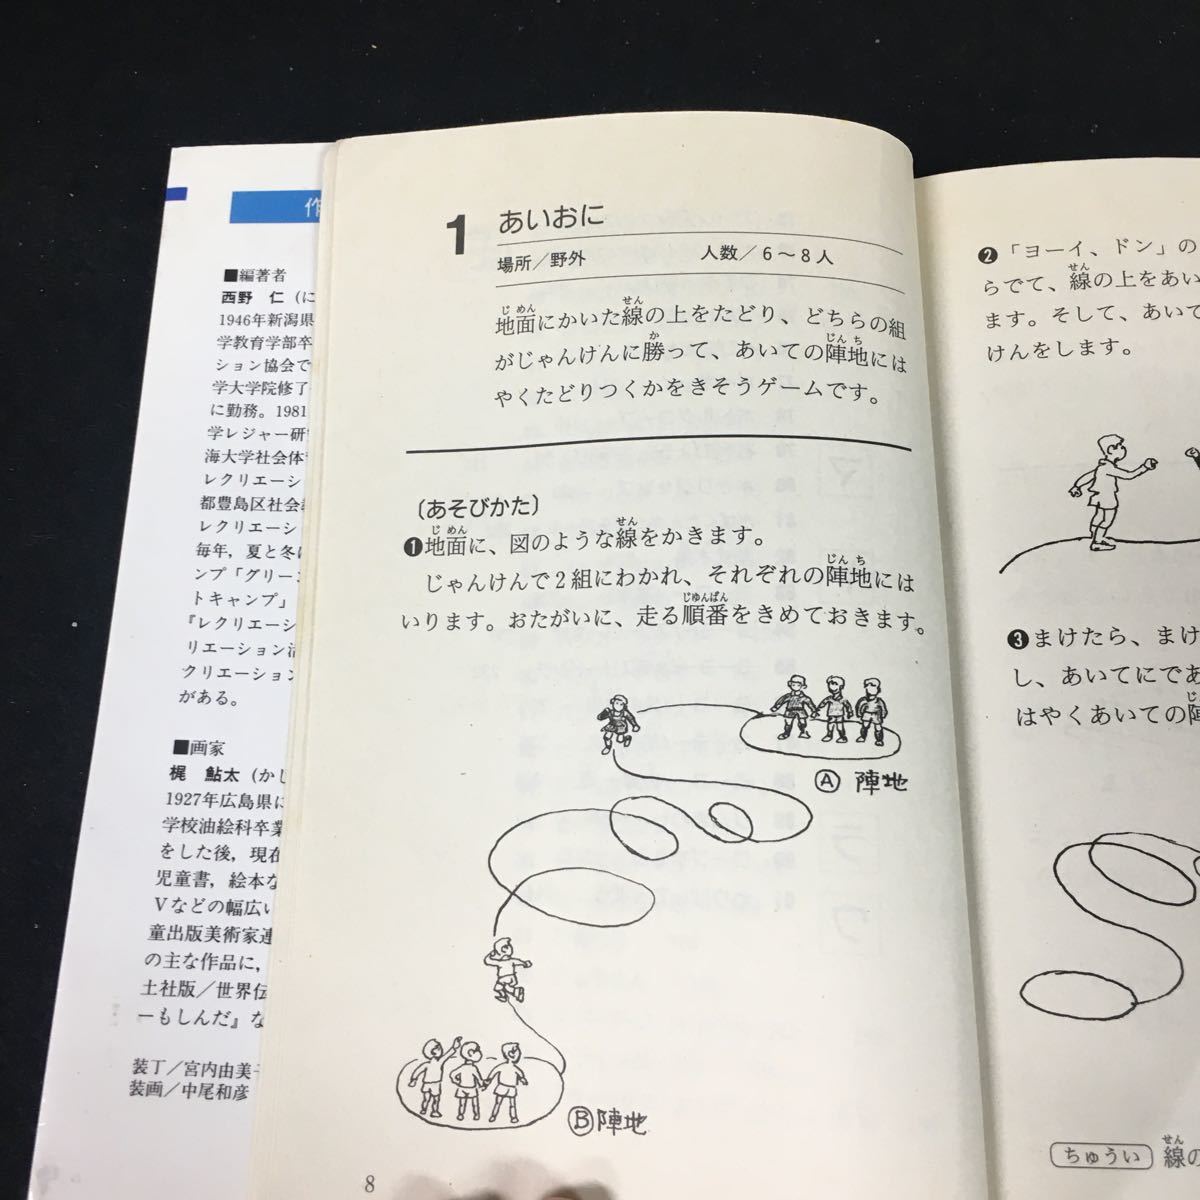 作
■編著者
西野 仁(に
1946年新潟県
学教育学部卒
ション協会で
学大学院修了
に勤務。1981
学レジャー研
海大学社会体
レクリエーシ
都豊島区社会
レクリエーシ
毎年，夏と冬に
ンプ「グリー
トキャンプ」
『レクリエーシ
リエーション
クリエーション
がある。
■画家
梶 鮎太(かじ
1927年広島県に
学校油絵科卒業
をした後，現在
児童書，絵本な
Vなどの幅広い
童出版美術家連
の主な作品に，
土社版／世界伝
ーもしんだ』な
装丁／宮内由美子
装画／中尾和彦
1 あいおに
場所／野外 人数／6〜8人
地面にかいた線の上をたどり、どちらの組
がじゃんけんに勝って、あいての陣地には
やくたどりつくかをきそうゲームです。
〔あそびかた〕
❶地面に、図のような線をかきます。
じゃんけんで2組にわかれ、それぞれの陣地には
いります。おたがいに、走る順番をきめておきます。
Ⓐ 陣地
Ⓑ 陣地
8
❷「ヨーイ、ドン」の
らでて、線の上をあい
ます。そして、あいて
けんをします。
❸まけたら、まけ
し、あいてにであ
はやくあいての陣
ちゅうい 線の